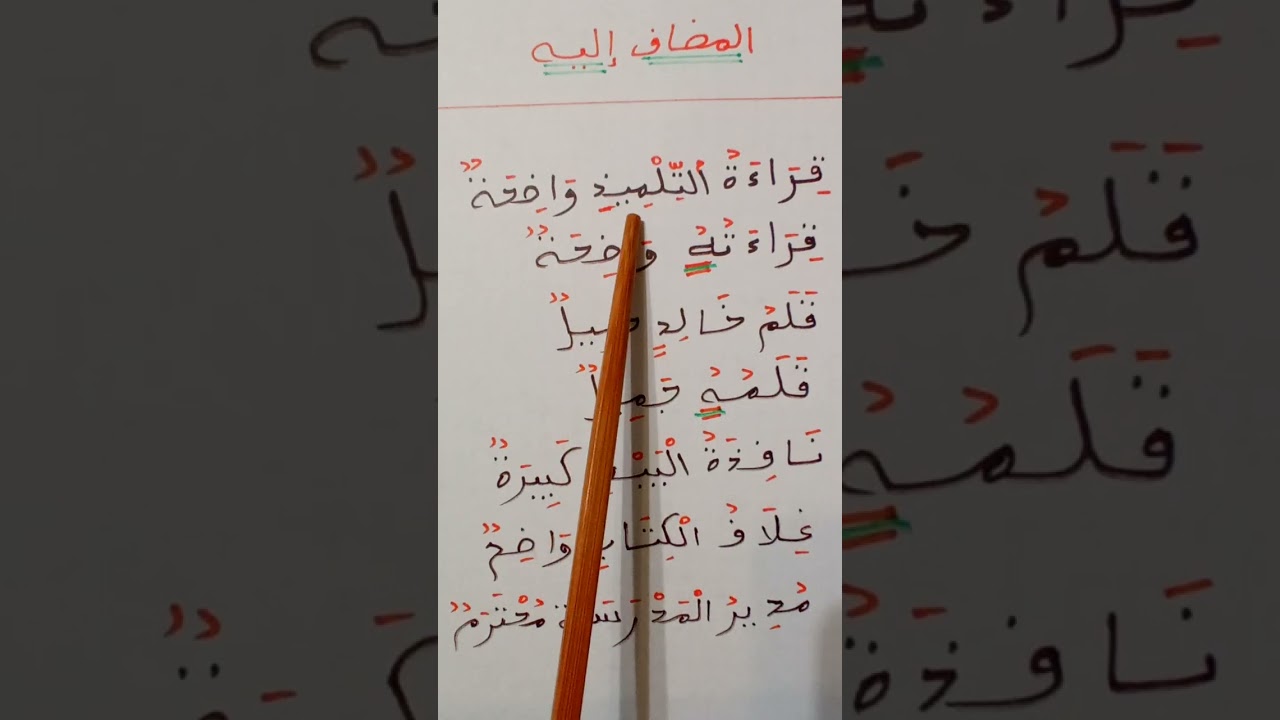 المضاف إليه
قِرَاءَةُ اَلتِّلْمِيذِ وَاضِحَةٌ
قِرَاءَتُهُ وَاضِحَةٌ
قَلَمُ خَالِدٍ جَمِيلٌ
قَلَمُهُ جَمِيلٌ
نَافِذَةُ الْبَيْتِ كَبِيرَةٌ
غِلَافُ الْكِتَابِ وَاضِحٌ
مُدِيرُ الْمَدْرَسَةِ مُحْتَرَمٌ